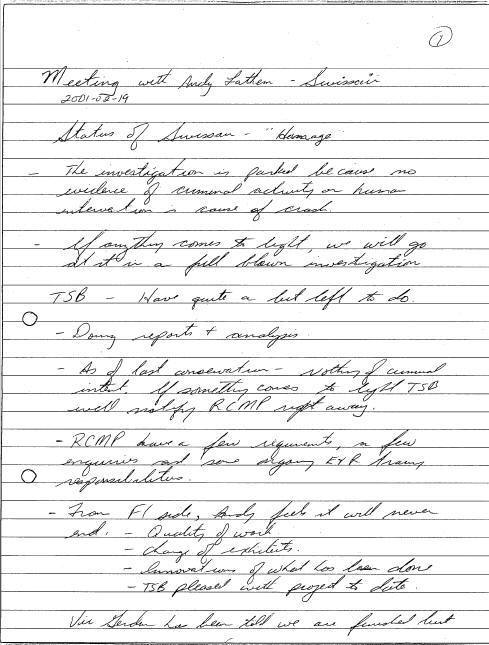 1
Meeting with Andy Lathem - Swissair
2001-02-19
Status of Swissair - "Homage"
- The investigation is parked because no
evidence of criminal activity or human
intervention is cause of crash.
- If anything comes to light, we will go
at it in a full blown investigation
TSB - Have quite a bit left to do.
- Doing reports + analysis.
- As of last conversation - nothing of criminal
intent. If something comes to light TSB
will notify RCMP right away.
- RCMP have a few requirements, a few
enquiries and some ongoing
responsibilities.
- From FI side, Andy feels it will never
end. - Quality of work
- change of exhibits.
- Innovations of what has been done
- TSB pleased with project to date.
Vic has been told we are finished but